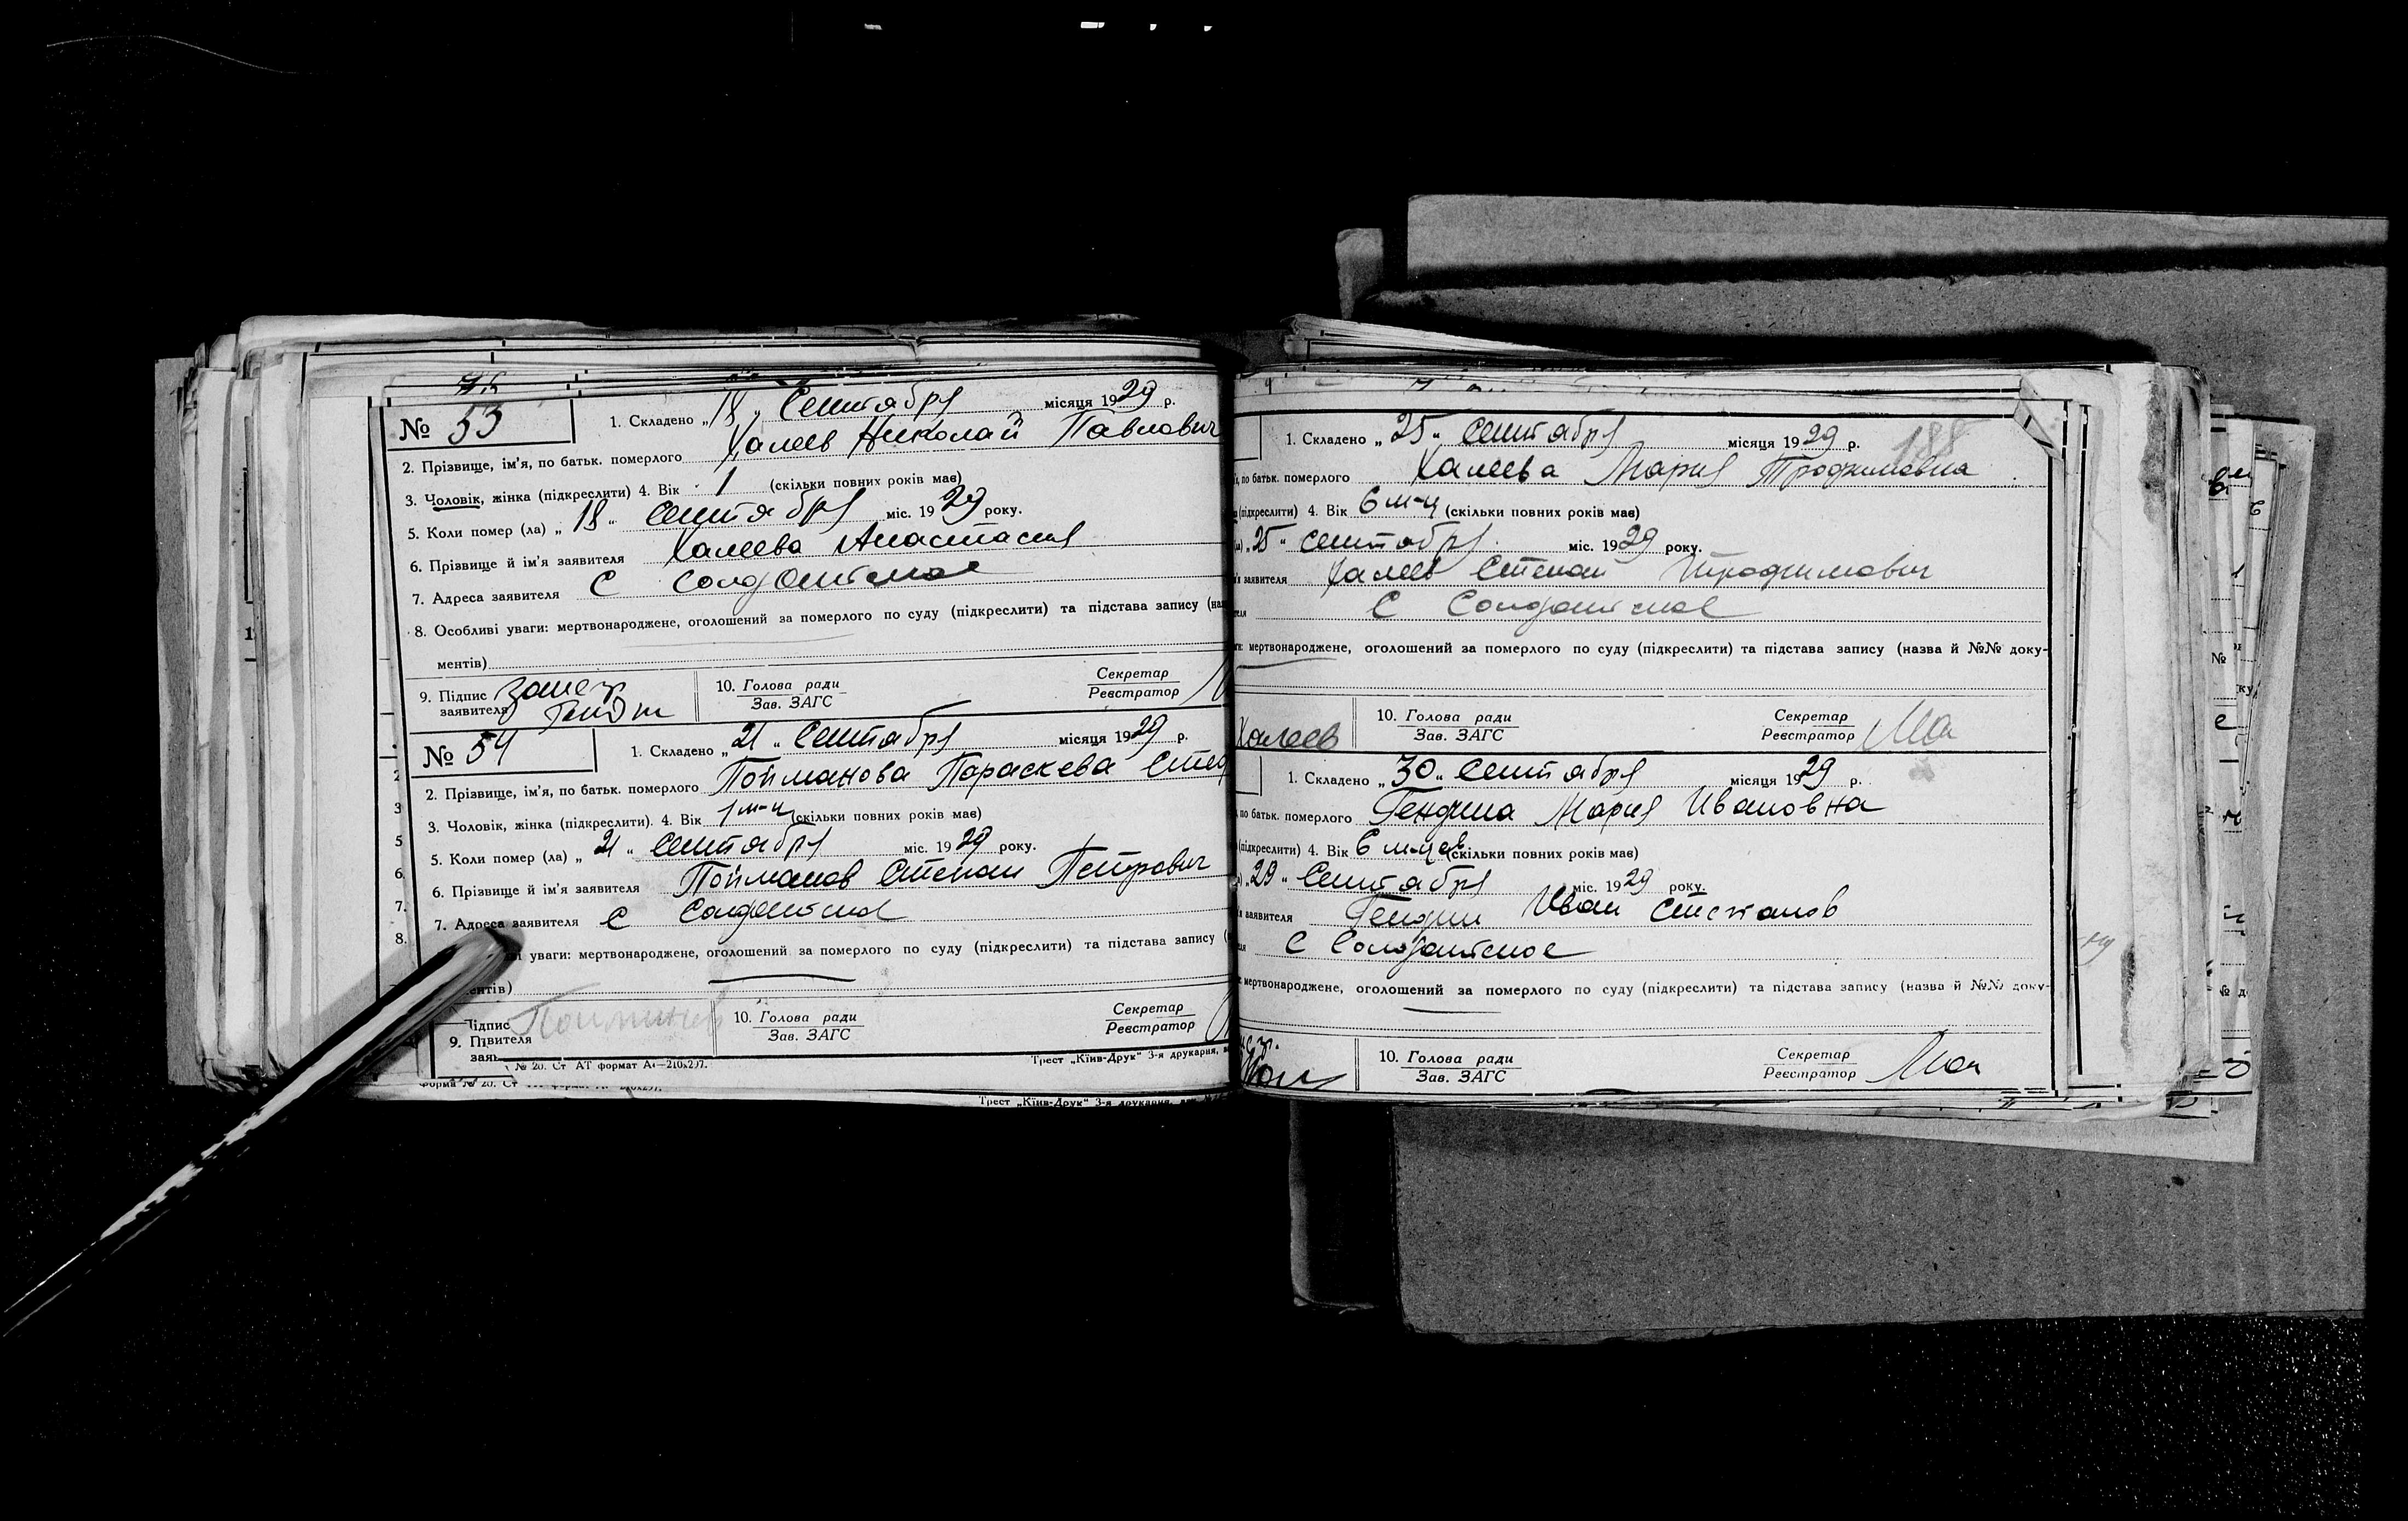 № 53
1. Складено „18„ Сентября місяця 1929 р.
2. Прізвище, ім'я, по батьк. померлого Халеев Николай Павлович
3. Чоловік, жінка (підкреслити) 4. Вік 1 (скільки повних років має)
5. Коли помер (ла) „18„ Сентября міс. 1929 року.
6. Прізвище й ім'я заявителя Халеева Анастасия
7. Адреса заявителя С Солдатское
8. Особливі уваги: мертвонароджене, оголошений за померлого по суду (підкреслити) та підстава запису
ментів)
9. Підпис заявителя
10. Голова ради
Зав. ЗАГС
Секретар
Реєстратор
№ 54
1. Складено „21„ Сентября місяця 1929 р.
2. Прізвище, ім'я, по батьк. померлого Пойманова Параскева
3. Чоловік, жінка (підкреслити). 4. Вік 1 м-ц (скільки повних років має)
5. Коли помер (ла) „21„ Сентября міс. 1929 року.
6. Прізвище й ім'я заявителя Пойманов Степан Петрович
7. Адреса заявителя С Солдатское
уваги: мертвонароджене, оголошений за померлого по суду (підкреслити) та підстава запису
ментів)
9.
10. Голова ради
Зав. ЗАГС
Секретар
Реєстратор
№ 20. Ст АТ формат А4—210х297.
Трест „Київ-Друк“ 3-я друкарня,
Трест „Київ-Друк“ 3-я друкарня,
188
1. Складено „25„ Сентября місяця 1929 р.
по батьк. померлого Халеева Мария Трофимовна
(підкреслити) 4. Вік 6 м-ц (скільки повних років має)
„25„ Сентября міс. 1929 року.
заявителя Халеев Степан Трофимович
С Солдатское
мертвонароджене, оголошений за померлого по суду (підкреслити) та підстава запису (назва й №№ доку-
Халеев
10. Голова ради
Зав. ЗАГС
Секретар
Реєстратор
1. Складено „30„ Сентября місяця 1929 р.
по батьк. померлого Гендина Мария Ивановна
(підкреслити) 4. Вік 6 м-цев (скільки повних років має)
„29„ Сентября міс. 1929 року.
заявителя Гендин Иван Степанов
С Солдатское
мертвонароджене, оголошений за померлого по суду (підкреслити) та підстава запису (назва й №№ доку-
10. Голова ради
Зав. ЗАГС
Секретар
Реєстратор